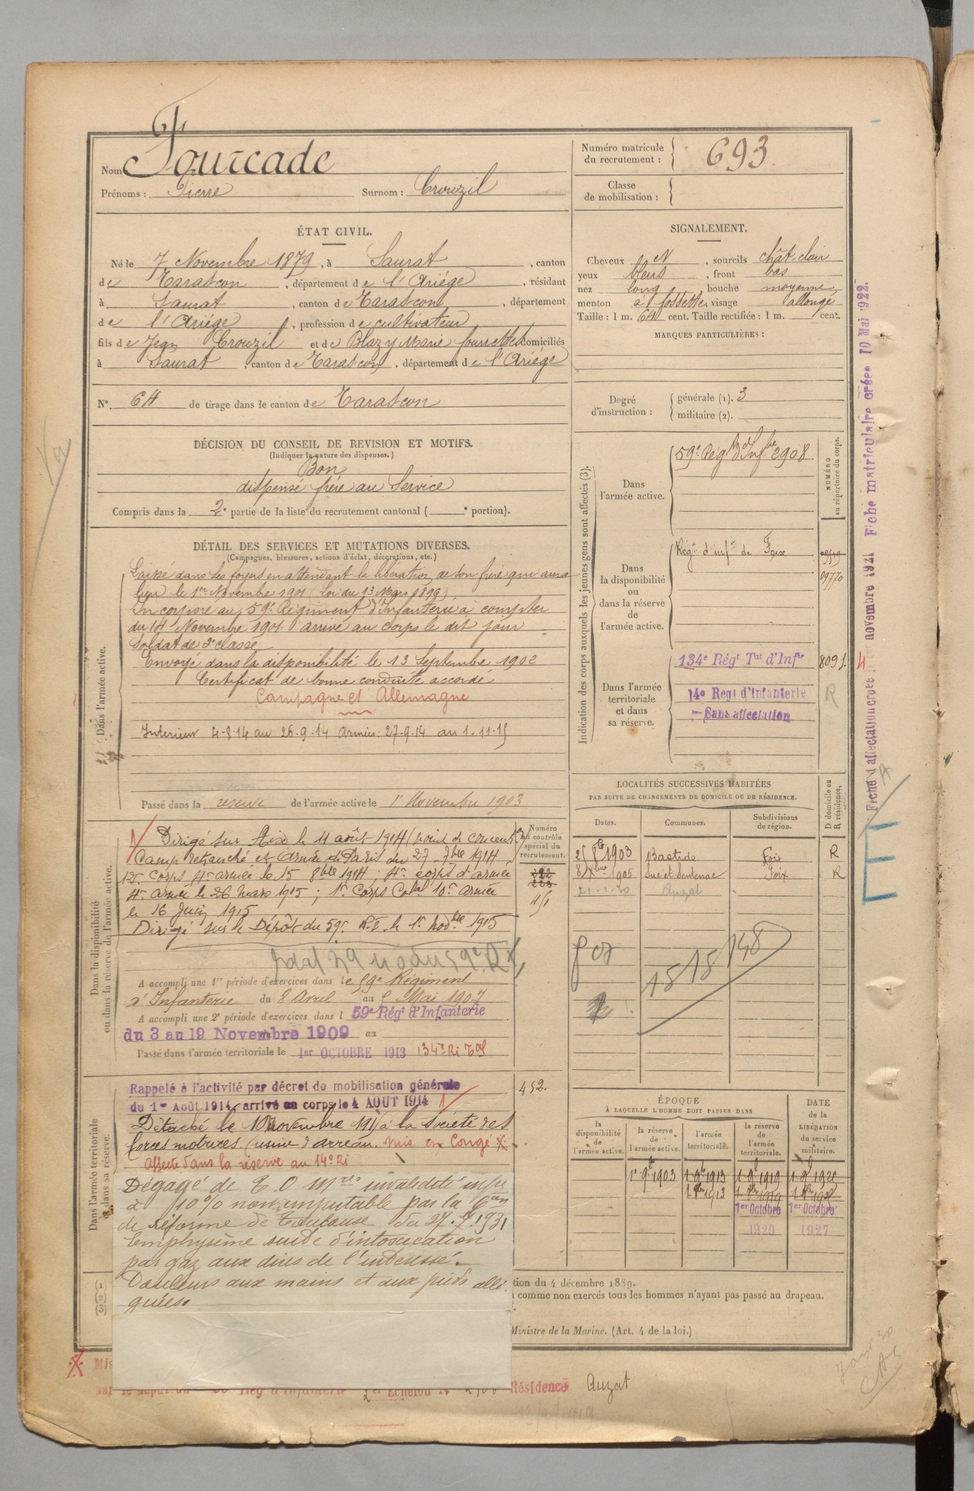 Nom Fourcade
Prénoms : Pierre Surnom : Crouzil
Numéro matricule du recrutement : 693
Classe de mobilisation :
ÉTAT CIVIL.
Né le 7 Novembre 1879, à Saurat, canton
de Tarascon, département de l'Ariège, résidant
à Saurat, canton de Tarascon, département
de l'Ariège, profession de cultivateur
fils de Jean Crouzil et de Blazy Marie domiciliés
à Saurat, canton de Tarascon, département de l'Ariège
N° 64 de tirage dans le canton de Tarascon
SIGNALEMENT.
Cheveux , sourcils chât. clair
yeux bleus , front bas
nez long , bouche moyenne
menton à fossette visage allongé
Taille : 1 m. 64 cent. Taille rectifiée : 1 m. cent.
MARQUES PARTICULIÈRES :
Degré d'instruction : générale (1). 3
militaire (2).
DÉCISION DU CONSEIL DE REVISION ET MOTIFS.
(Indiquer la nature des dispenses.)
Bon
dispensé frère au Service
Compris dans la 2e partie de la liste du recrutement cantonal ( e portion).
DÉTAIL DES SERVICES ET MUTATIONS DIVERSES.
(Campagnes, blessures, actions d'éclat, décorations, etc.)
Laissé dans ses foyers en attendant la libération de son frère qui aura
lieu le 1er Novembre 1901 (Loi du 13 Mars 1899)
Incorporé au 59e Régiment d'Infanterie à compter
du 14 Novembre 1901 arrivé au corps le dit jour
Soldat de 2e classe
Envoyé dans la disponibilité le 13 Septembre 1902
Certificat de bonne conduite accordé
Campagne et Allemagne
Intérieur 4-8-14 au 26-9-14 Armée 27-9-14 au 1-11-15
Passé dans la réserve de l'armée active le 1er Novembre 1903
Dans l'armée active.
Indication des corps auxquels les jeunes gens sont affectés (3).
Dans l'armée active. 59e Régt d'Infie 2908
NUMÉRO au répertoire du corps.
Dans la disponibilité ou dans la réserve de l'armée active. Régt d'infie de Foix
09770
Dans l'armée territoriale et dans sa réserve. 134e Régt Tal d'Infie 8091
14e Régt d'Infanterie
Sans affectation
R
LOCALITÉS SUCCESSIVES HABITÉES
PAR SUITE DE CHANGEMENTS DE DOMICILE OU DE RÉSIDENCE.
Dates. Communes. Subdivisions de région. D domicile ou R résidence.
1903 Bastide Foix R
1905 Suc et Sentenac Foix R
21-1-20 Auzat
18 18 148
Dans la disponibilité ou dans la réserve de l'armée active.
Numéro au contrôle spécial du recrutement.
Dirigé sur le 11 août 1914
Camp retranché et Armée de Paris du 27 7bre 1914,
12e Corps 4e armée le 15 8bre 1914; 4e corps d'armée
4e armée le 26 mars 1915; 1er Corps Cal 10e armée
le 16 Juin 1915
Dirigé sur le Dépôt du 59e R.I. le 1er novbre 1915
A accompli une 1re période d'exercices dans le 59e Régiment
d'Infanterie du 8 Avril au Mai 1907
A accompli une 2e période d'exercices dans l 59e Régt d'Infanterie
du 3 au 19 Novembre 1909 au
Passé dans l'armée territoriale le 1er OCTOBRE 1913 134e Ri Tal
Dans l'armée territoriale et dans sa réserve.
Rappelé à l'activité par décret de mobilisation générale
du 1er Août 1914, arrivé au corps le 4 AOUT 1914
452.
Détaché le 10 novembre à la Société des
forces motrices (usine d'arreau. mis en Congé
affecté dans la réserve au 14e Ri
Dégagé de T.O. Mre invalidité infre
à 10% non imputable par la 6e
de réforme de Toulouse du 27.7.1931
Emphysème suite d'intoxication
par gaz aux dires de l'intéressé.
Douleurs aux mains et aux pieds allé-
guées.
ÉPOQUE
À LAQUELLE L'HOMME DOIT PASSER DANS
la disponibilité de l'armée active. la réserve de l'armée active. l'armée territoriale. la réserve de l'armée territoriale.
DATE de la LIBÉRATION du service militaire.
1er 9bre 1903
1er Octobre 1er Octobre
1920 1927
tion du 4 décembre 1889.
comme non exercés tous les hommes n'ayant pas passé au drapeau.
Ministre de la Marine. (Art. 4 de la loi.)
Résidence Auzat
Fiche d'affectation créée 4 novembre 1921 Fiche matriculaire créée 10 Mai 1922.